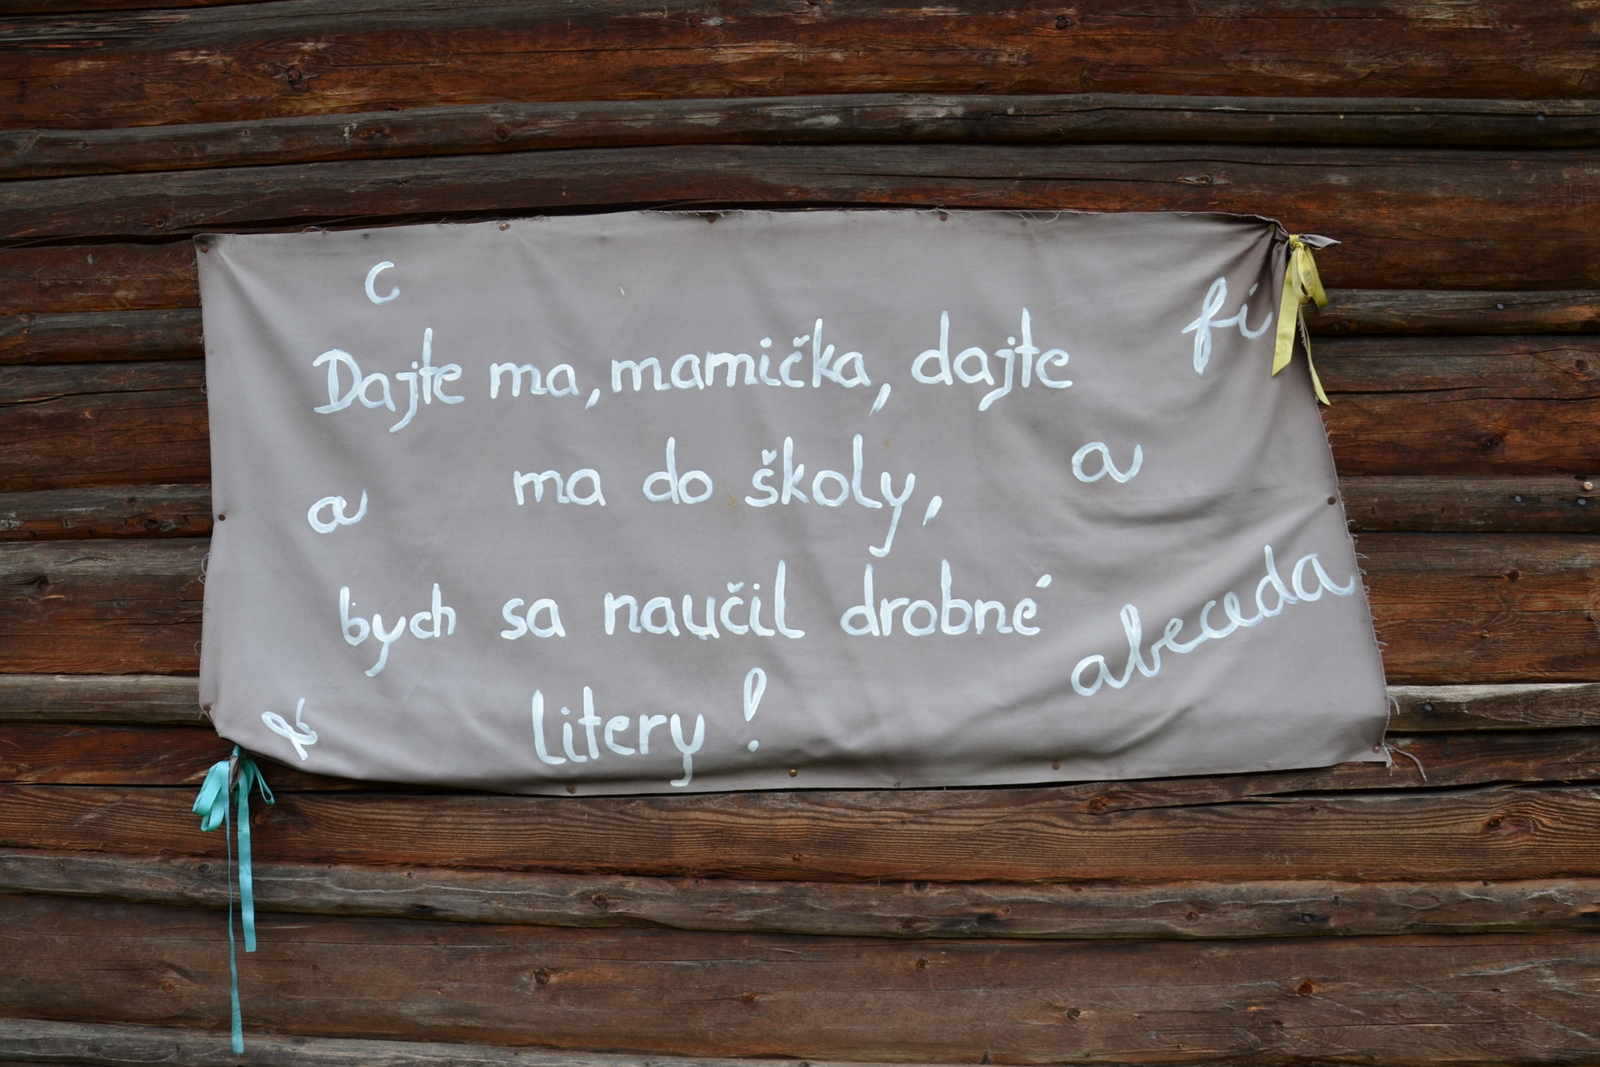 c
fi
Dajte ma, mamička, dajte
ma do školy,
a
a
bych sa naučil drobné
abeceda
litery!